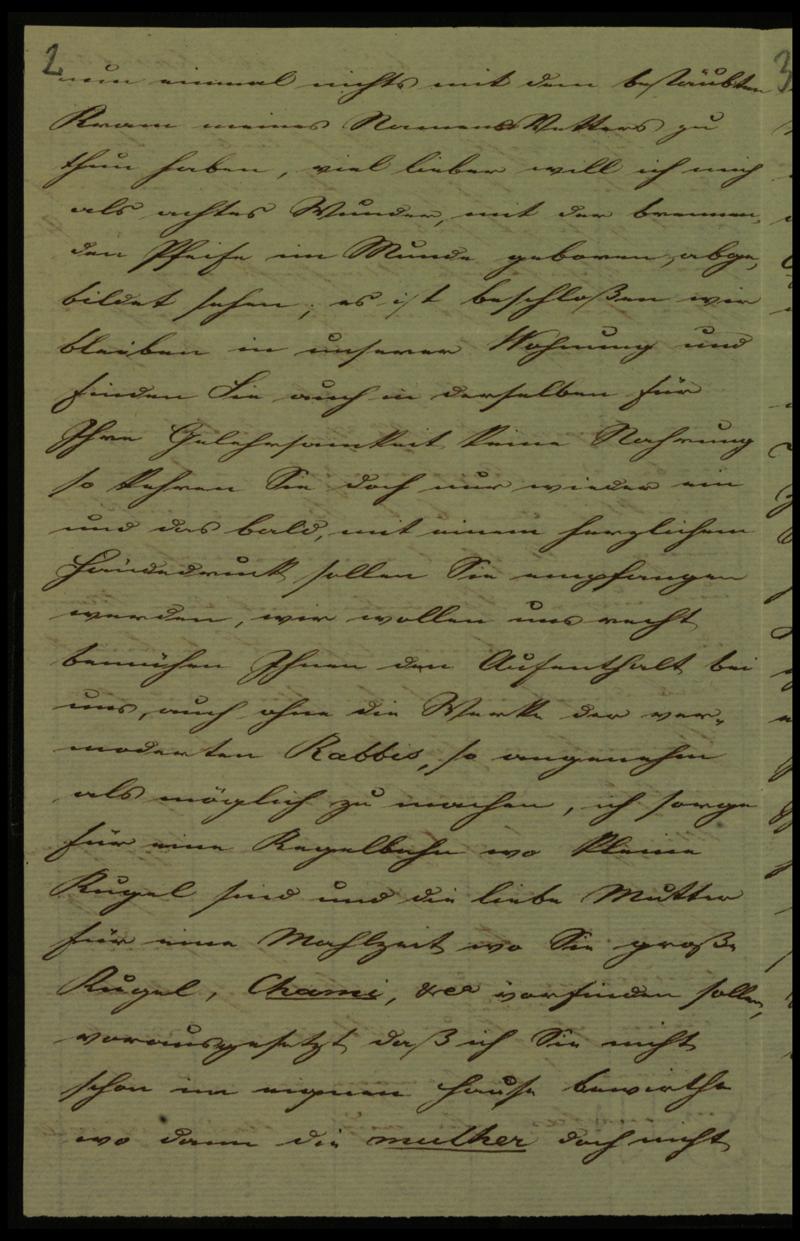 2
nun einmal nichts mit dem bestäubten
Kram meines Namens Vetters zu
thun haben, viel lieber will ich mich
als achtes Wunder, mit der brennen,
den Pfeife im Munde geboren, abge,
bildet sehen; es ist beschloßen wir
bleiben in unserer Wohnung und
finden Sie auch in derselben für
Ihre Gelehrsamkeit keine Nahrung
so kehren Sie doch nur wieder ein
und das bald, mit einem herzlichem
Händedruck sollen Sie empfangen
werden, wir wollen uns recht
bemühen Ihnen den Aufenthalt bei
uns, auch ohne die Werke der ver„
moderten Rabbis, so angenehm
als möglich zu machen, ich sorge
für eine Kegelbahn wo kleine
Kugel sind und die liebe Mutter
für eine Mahlzeit wo Sie große
Kugel, Chami, &ca vorfinden sollen,
vorausgesetzt daß ich Sie nicht
schon im eignen Hause bewirthe
wo dann die muther doch nicht
3